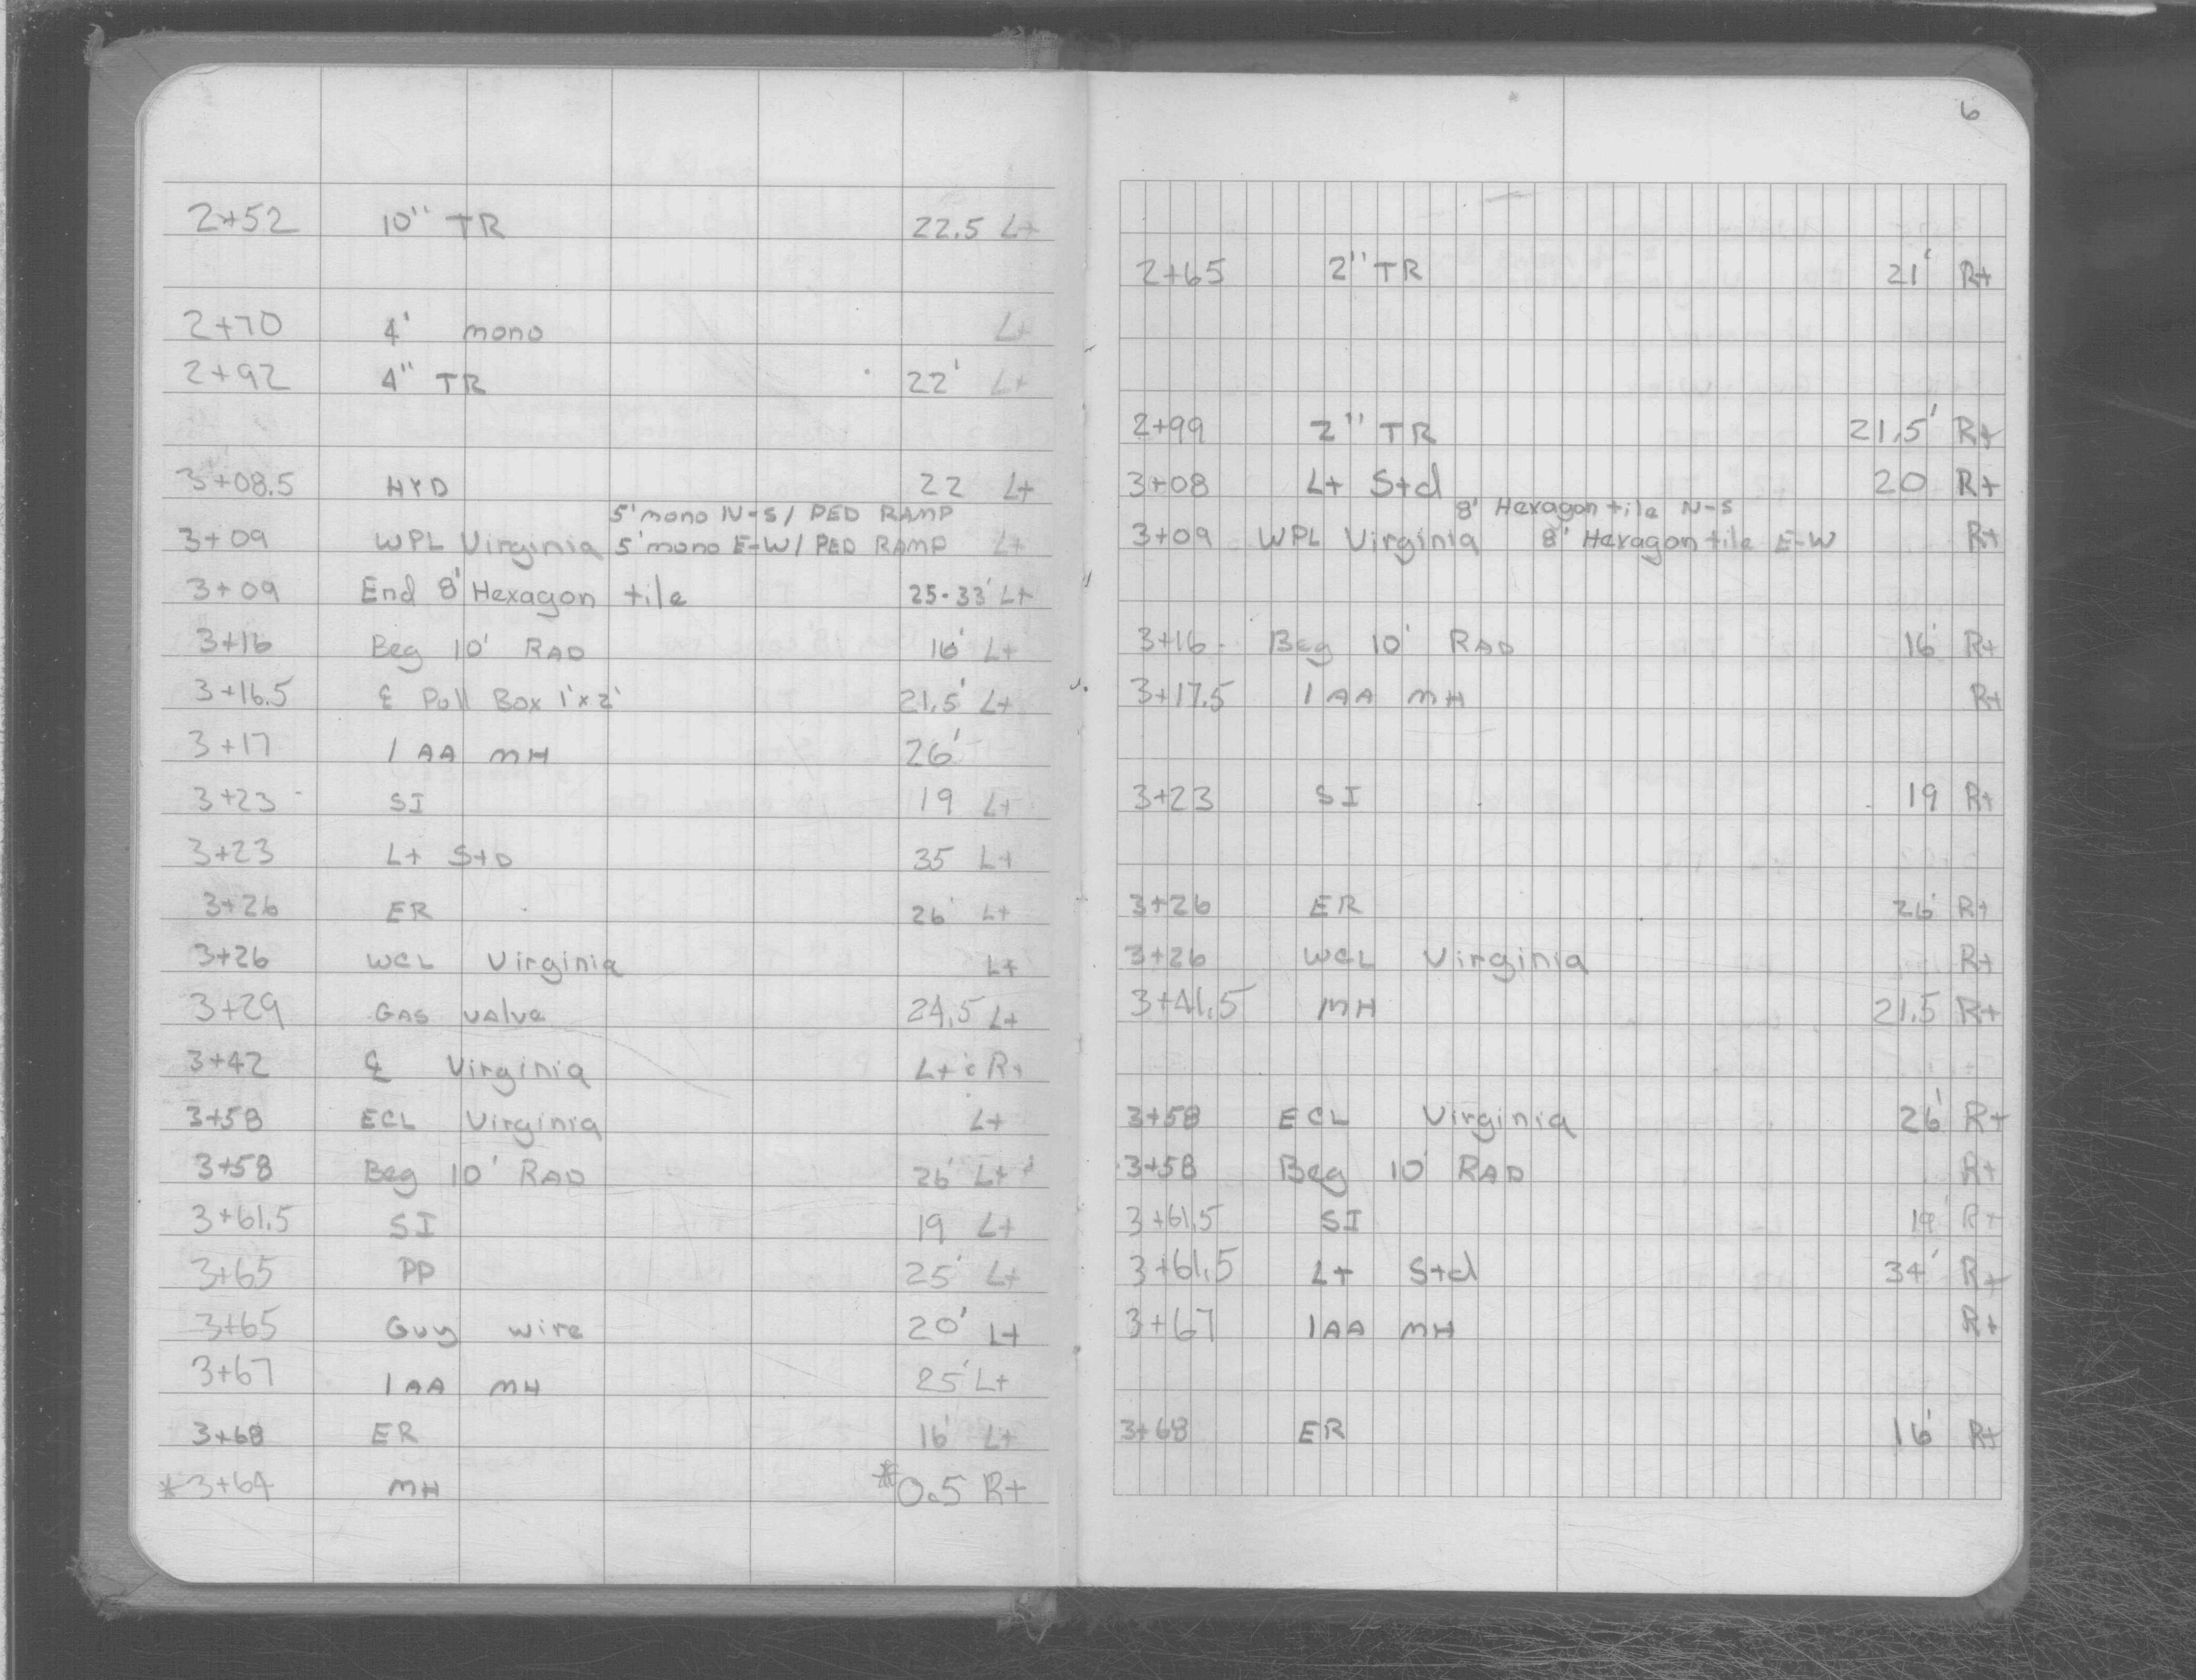 2+52 10" TR 22.5 Lt
2+70 4' mono Lt
2+92 4" TR 22' Lt
3+08.5 HYD 22 Lt
5' mono N-S / PED RAMP
3+09 WPL Virginia 5' mono E-W / PED RAMP Lt
3+09 End 8' Hexagon tile 25-33' Lt
3+16 Beg 10' RAD 16' Lt
3+16.5 ℄ Pull Box 1'x2' 21.5' Lt
3+17 1 AA MH 26'
3+23 SI 19 Lt
3+23 Lt Std 35 Lt
3+26 ER 26' Lt
3+26 WCL Virginia Lt
3+29 GAS valve 24.5 Lt
3+42 ℄ Virginia Lt & Rt
3+58 ECL Virginia Lt
3+58 Beg 10' RAD 26' Lt
3+61.5 SI 19 Lt
3+65 PP 25' Lt
3+65 Guy wire 20' Lt
3+67 1 AA MH 25' Lt
3+68 ER 16' Lt
*3+64 MH *0.5 Rt
6
2+65 2" TR 21' Rt
2+99 2" TR 21.5' Rt
3+08 Lt Std 20 Rt
8' Hexagon tile N-S
3+09 WPL Virginia 8' Hexagon tile E-W Rt
3+16 Beg 10' RAD 16' Rt
3+17.5 1 AA MH Rt
3+23 SI 19 Rt
3+26 ER 26' Rt
3+26 WCL Virginia Rt
3+41.5 MH 21.5 Rt
3+58 ECL Virginia 26' Rt
3+58 Beg 10' RAD Rt
3+61.5 SI 19' Rt
3+61.5 Lt Std 34' Rt
3+67 1 AA MH Rt
3+68 ER 16' Rt